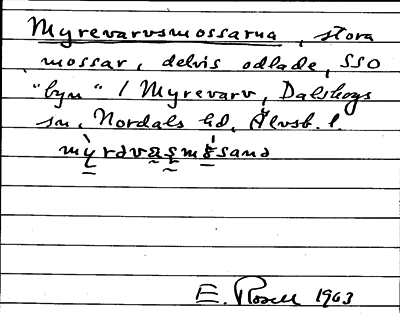 Myrevarvsmossarna, stora
mossar, delvis odlade, SSO
"byn" / Myrevarv, Dalskogs
sn, Nordals hd, Älvsb. l.
mỳrəvaʂmósanə
E. Rosell 1963